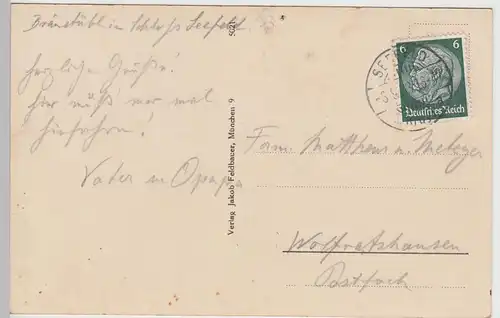 Bräustübl im Schloss Seefeld
herzliche Grüße!
hier müßt mer mal
hinfahren!
Vater u Opapa
5021
Verlag Jakob Feldbauer, München 9
6 6
Deutsches Reich
SEEFELD
Fam. Matthem u. Metzger
Wolfratshausen
Postfach